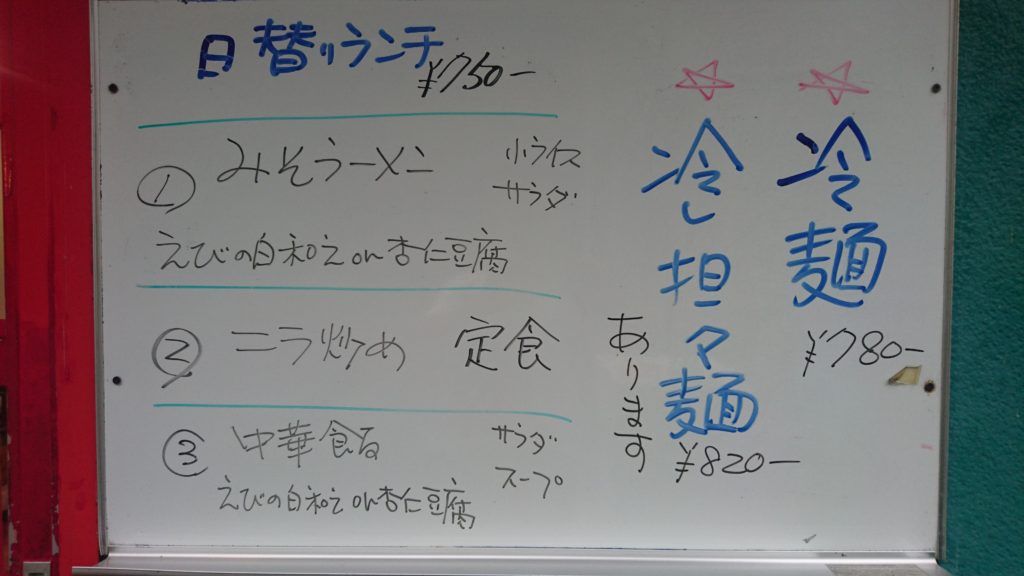 日替りランチ
¥750-
① みそラーメン 小ライス
サラダ
えびの白和えor杏仁豆腐
② ニラ炒め 定食
③ 中華 サラダ
スープ
えびの白和えor杏仁豆腐
☆冷麺
¥780-
☆冷し担々麺
¥820-
あります